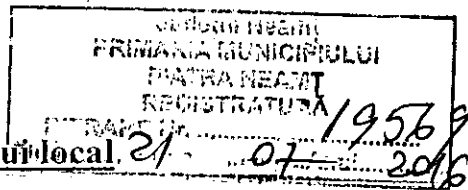 Județul Neamț
PRIMARIA MUNICIPIULUI
PIATRA NEAMȚ
REGISTRATURA
INTRARE Nr. 19569
ui local 21 07 2016